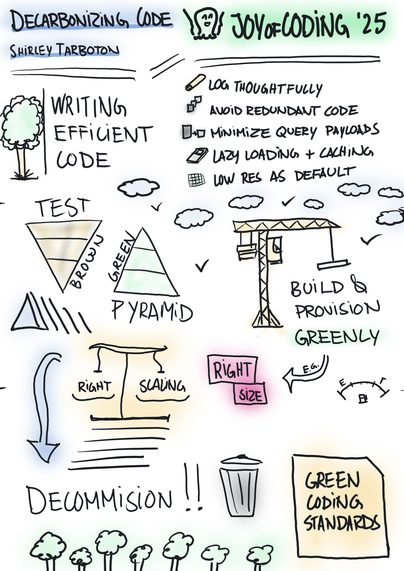 DECARBONIZING CODE
JOY OF CODING '25
SHIRLEY TARBOTON
WRITING
EFFICIENT
CODE
LOG THOUGHTFULLY
AVOID REDUNDANT CODE
MINIMIZE QUERY PAYLOADS
LAZY LOADING + CACHING
LOW RES AS DEFAULT
TEST
BROWN
GREEN
PYRAMID
BUILD &
PROVISION
GREENLY
RIGHT SCALING
RIGHT
SIZE
E.G.
E F
DECOMMISION !!
GREEN
CODING
STANDARDS